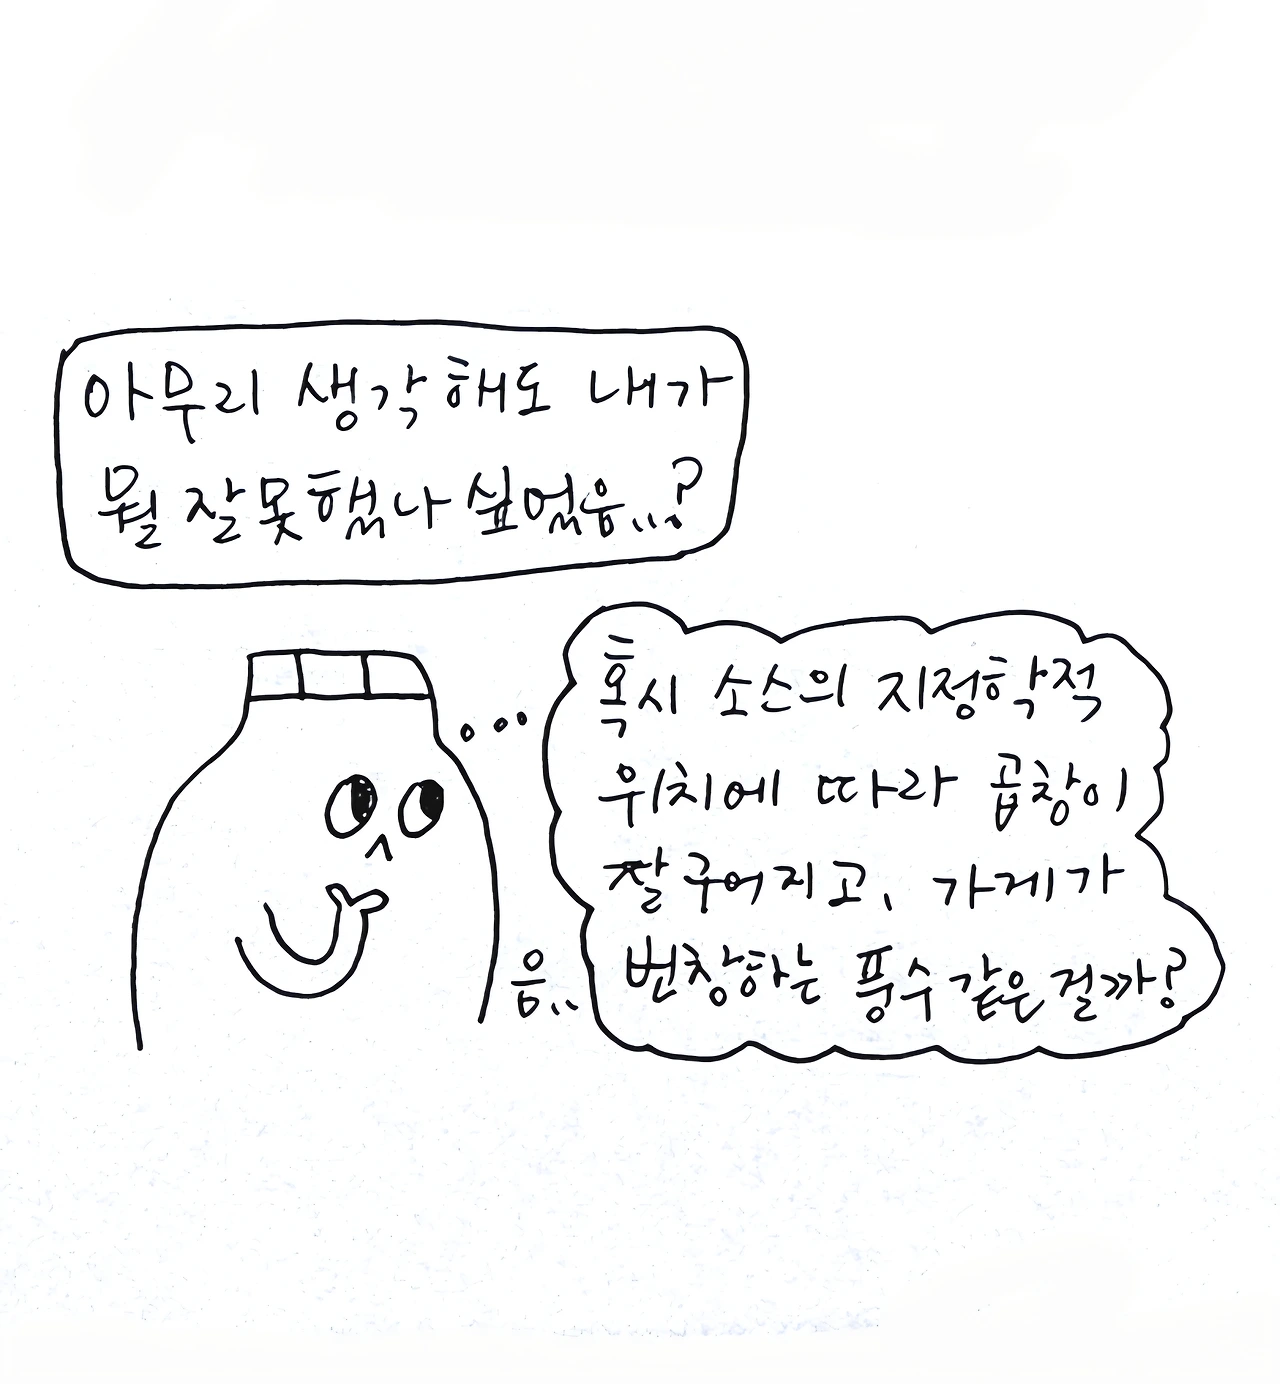 아무리 생각해도 내가
뭘 잘못했나 싶었음...?
혹시 소스의 지정학적
위치에 따라 곱창이
잘 구어지고, 가게가
번창하는 풍수 같은 걸까?
음..